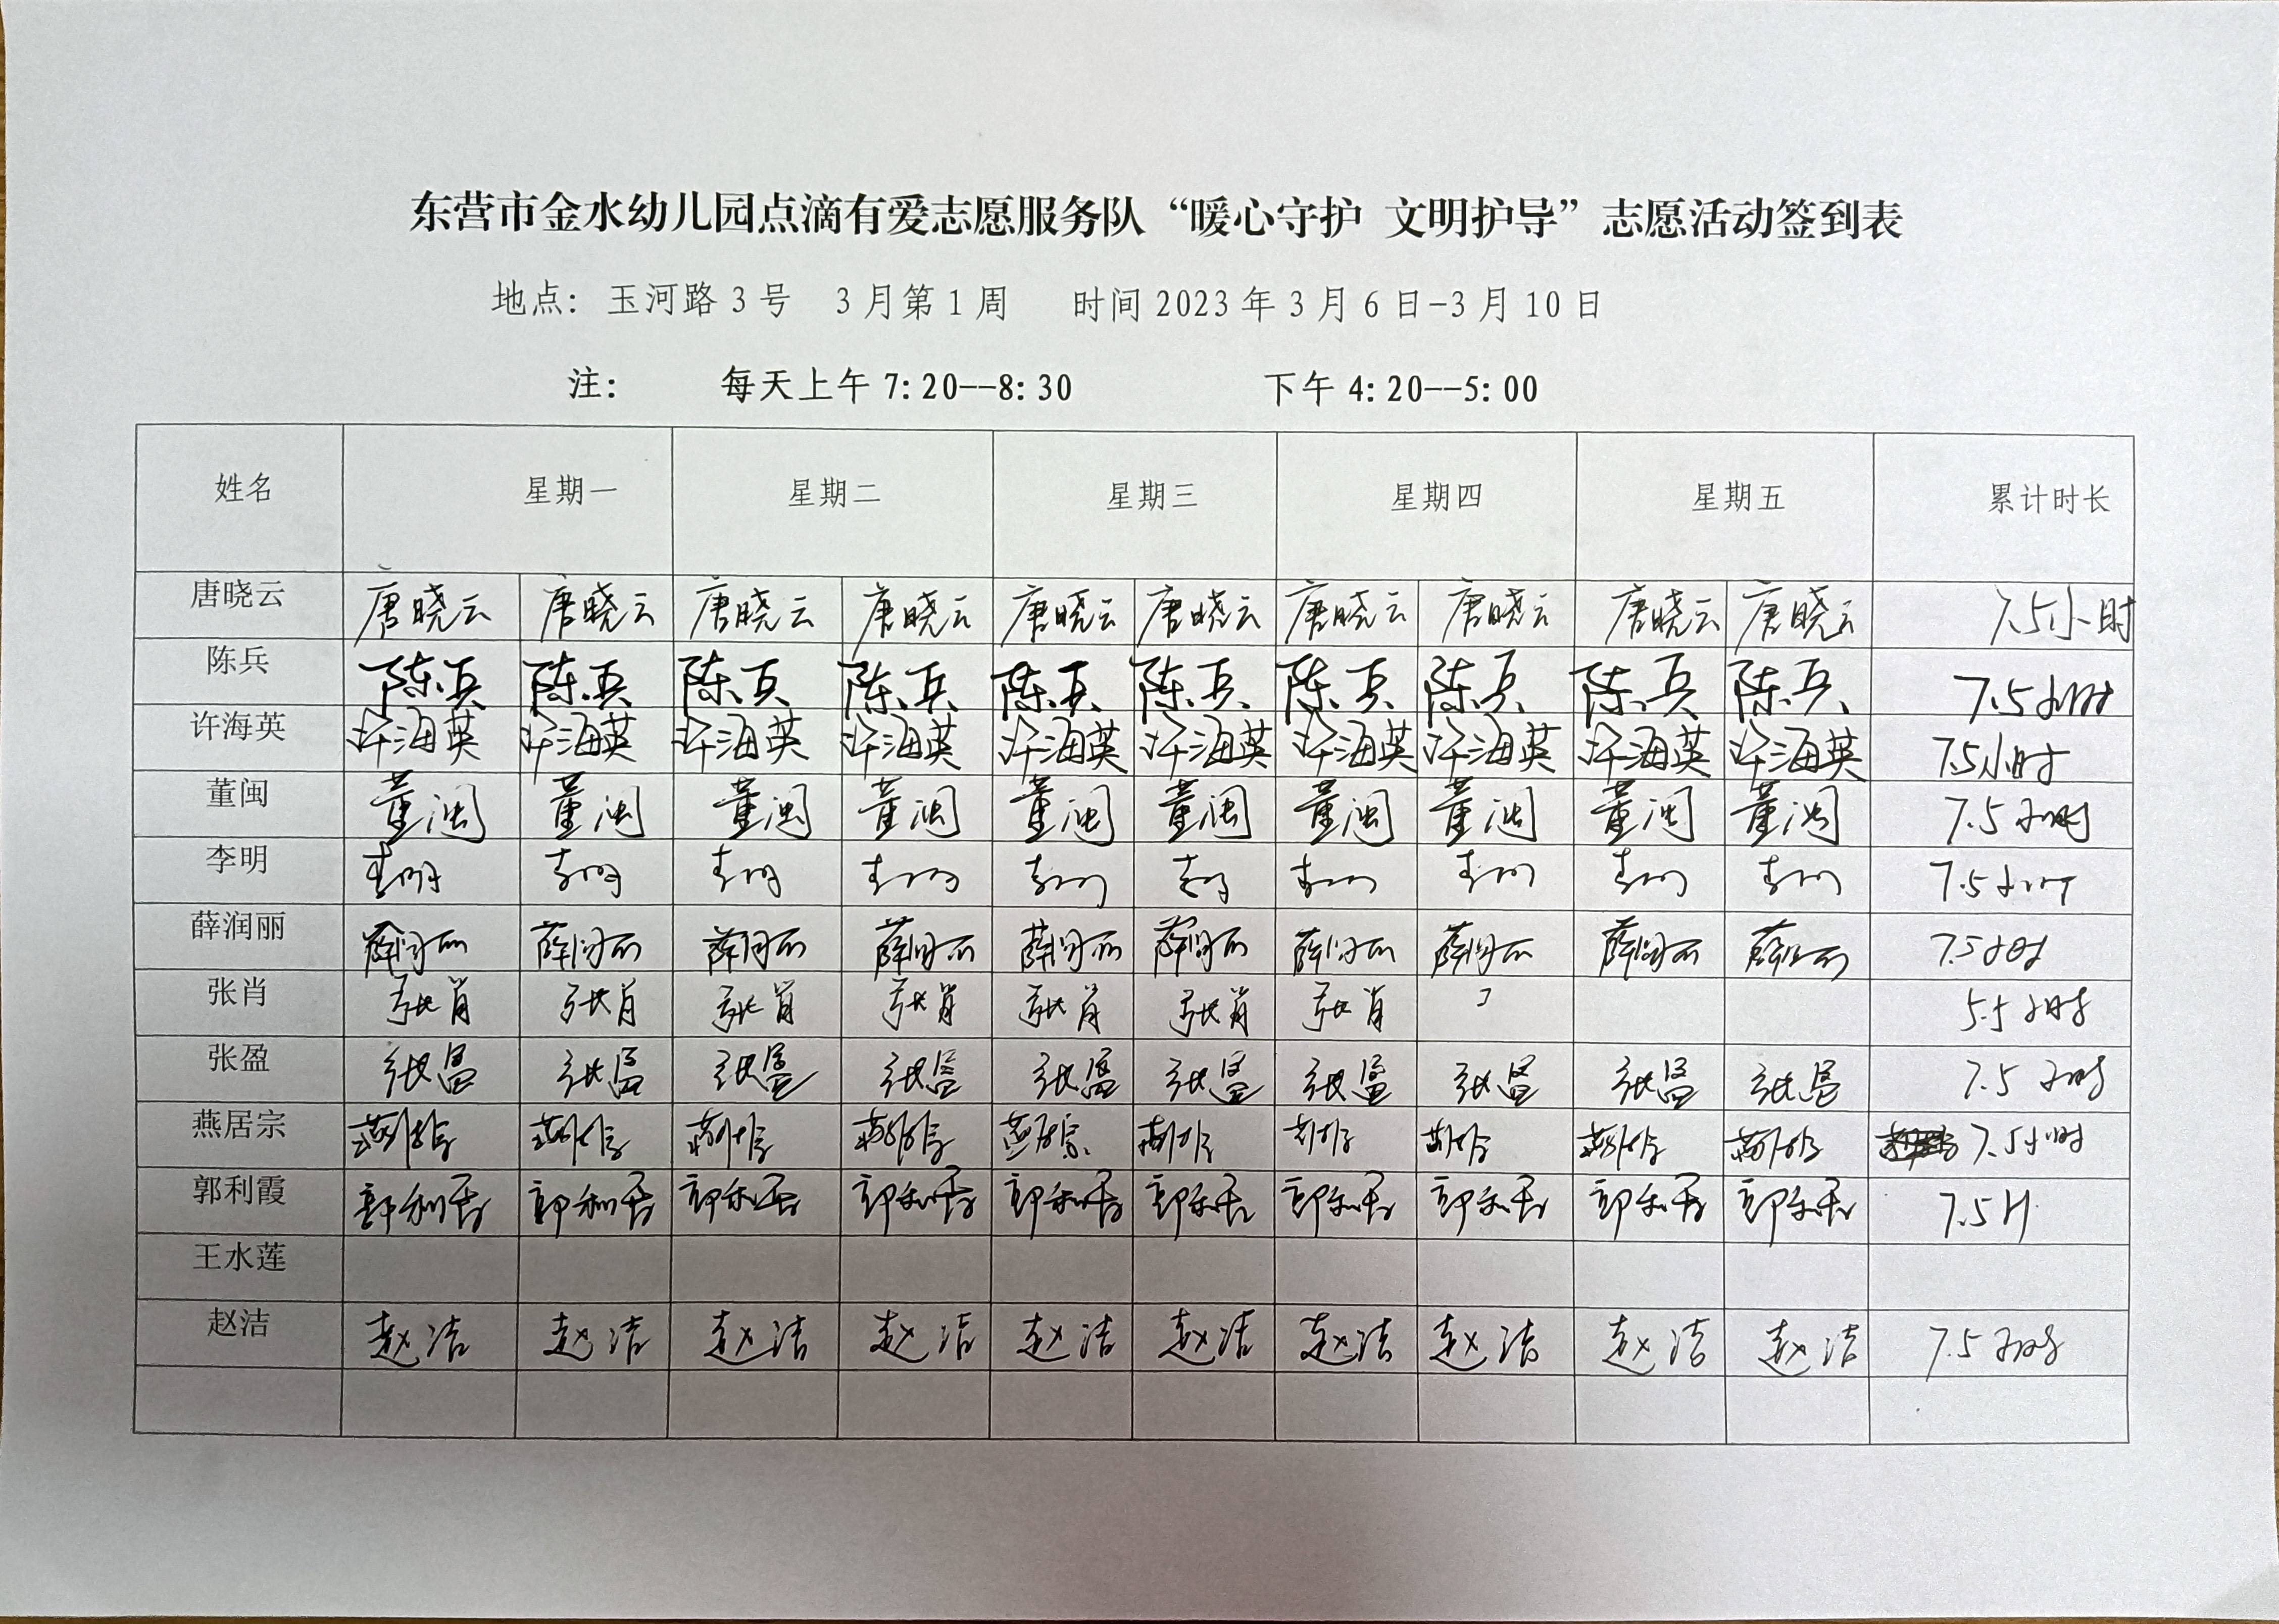 东营市金水幼儿园点滴有爱志愿服务队“暖心守护 文明护导”志愿活动签到表
地点：玉河路3号 3月第1周 时间2023年3月6日-3月10日
注： 每天上午7:20--8:30 下午4:20--5:00
姓名 星期一 星期二 星期三 星期四 星期五 累计时长
唐晓云 唐晓云 唐晓云 唐晓云 唐晓云 唐晓云 唐晓云 唐晓云 唐晓云 唐晓云 唐晓云 7.5小时
陈兵 陈兵 陈兵 陈兵 陈兵 陈兵 陈兵 陈兵 陈兵 陈兵 陈兵 7.5小时
许海英 许海英 许海英 许海英 许海英 许海英 许海英 许海英 许海英 许海英 许海英 7.5小时
董闽 董闽 董闽 董闽 董闽 董闽 董闽 董闽 董闽 董闽 董闽 7.5小时
李明 李明 李明 李明 李明 李明 李明 李明 李明 李明 李明 7.5小时
薛润丽 薛润丽 薛润丽 薛润丽 薛润丽 薛润丽 薛润丽 薛润丽 薛润丽 薛润丽 薛润丽 7.5小时
张肖 张肖 张肖 张肖 张肖 张肖 张肖 张肖 5.5小时
张盈 张盈 张盈 张盈 张盈 张盈 张盈 张盈 张盈 张盈 张盈 7.5小时
燕居宗 燕居宗 燕居宗 燕居宗 燕居宗 燕居宗 燕居宗 燕居宗 燕居宗 燕居宗 燕居宗 7.5小时
郭利霞 郭利霞 郭利霞 郭利霞 郭利霞 郭利霞 郭利霞 郭利霞 郭利霞 郭利霞 郭利霞 7.5H
王水莲
赵洁 赵洁 赵洁 赵洁 赵洁 赵洁 赵洁 赵洁 赵洁 赵洁 赵洁 7.5小时